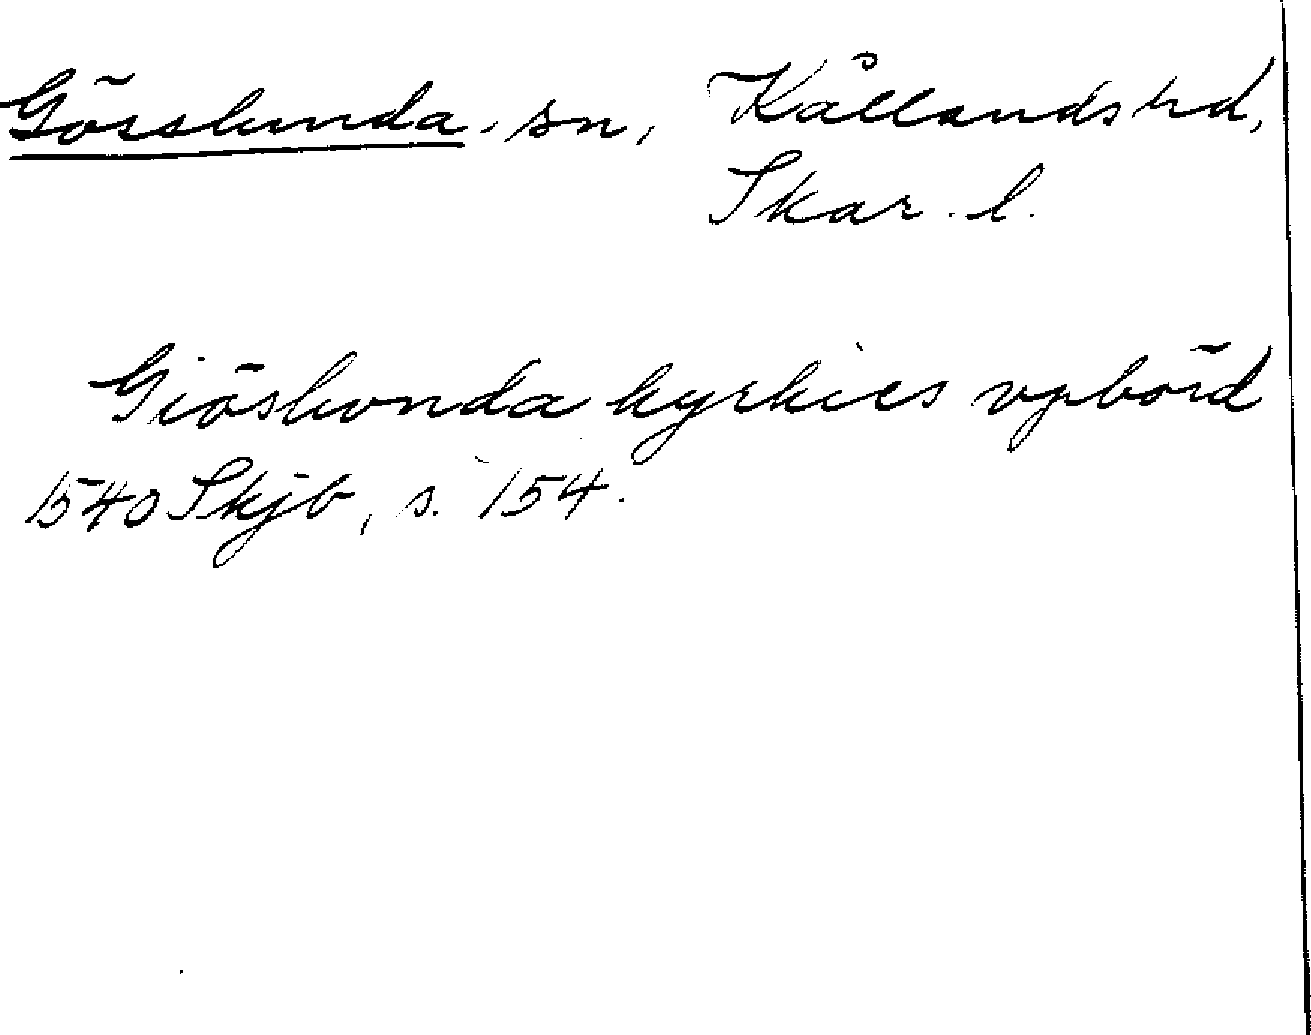 Gösslunda sn, Kållands hd,
Skar. l.
Giöslunda kyrkies vpbörd
1540 Skjb, s. 154.